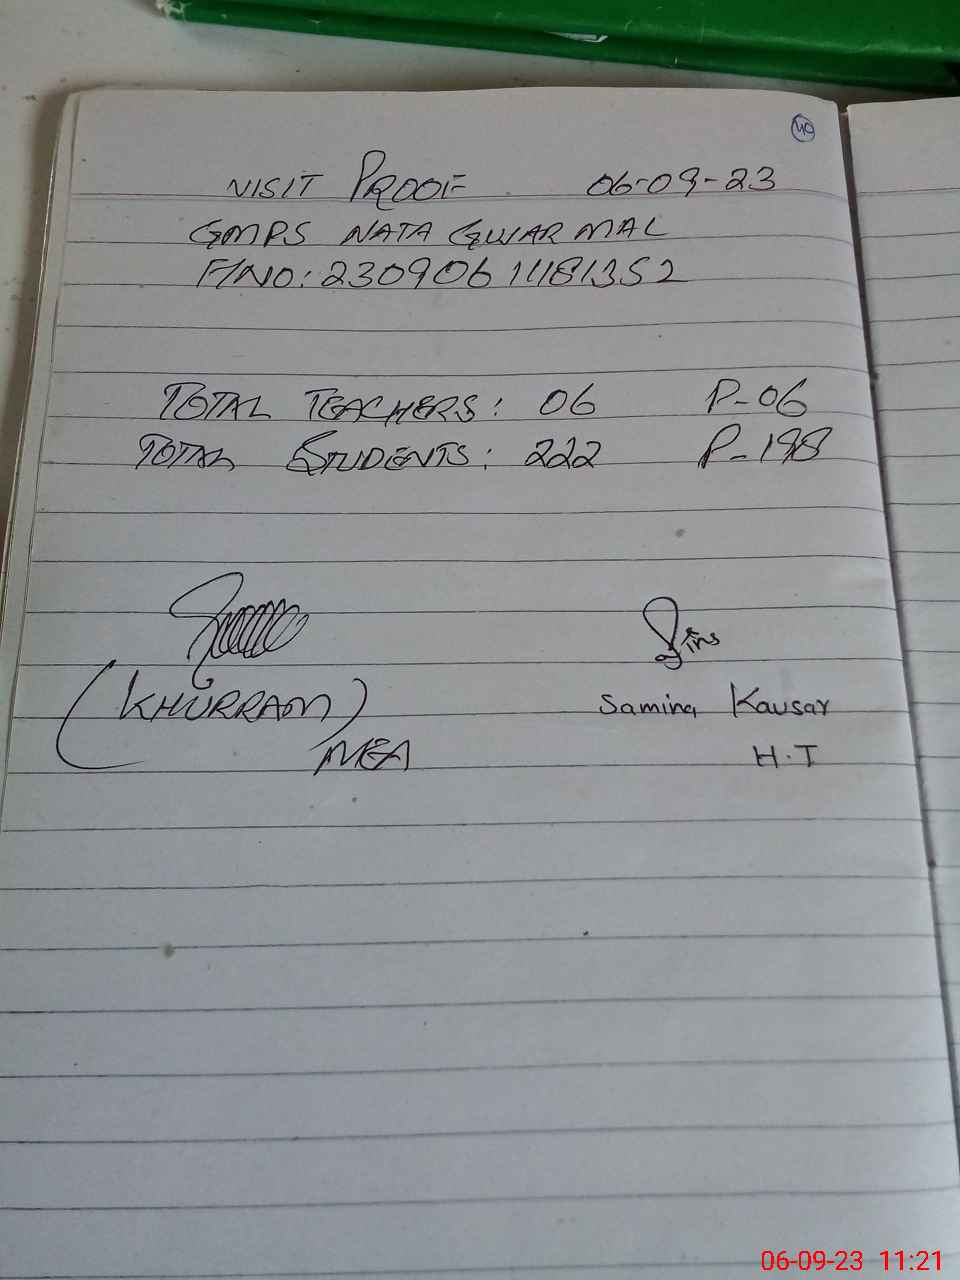 40
VISIT PROOF 06-09-23
GMPS NATA GUJAR MAL
F/NO: 2309061181352
TOTAL TEACHERS: 06 P-06
TOTAL STUDENTS: 222 P-198
(KHURRAM)
MEA
Samina Kausar
H.T
06-09-23 11:21